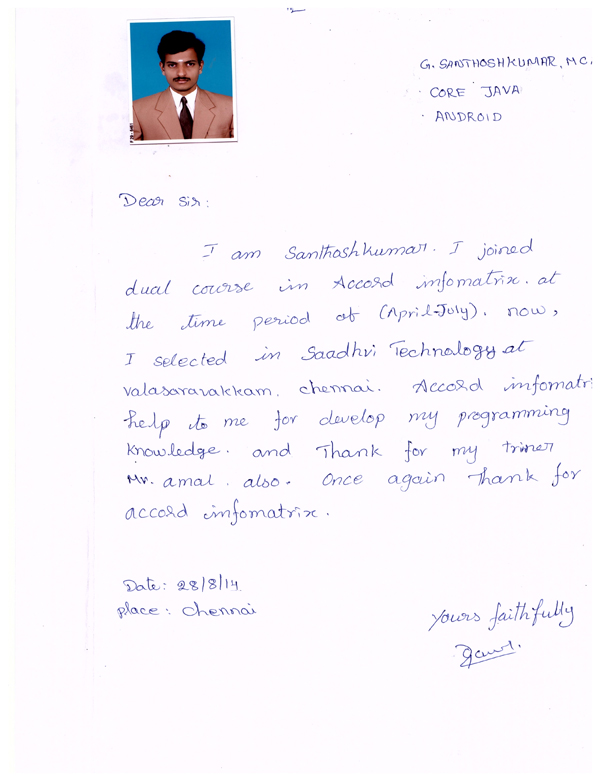 G. SANTHOSHKUMAR, MC.
· CORE JAVA
· ANDROID
Dear Sir:
I am Santhoshkumar. I joined
dual course in Accord infomatrix. at
the time period of (April-July). now,
I selected in Saadhvi Technology at
valasaravakkam. chennai. Accord infomatri
help to me for develop my programming
knowledge. and Thank for my triner
Mr. amal. also. Once again Thank for
accord infomatrix.
Date: 28/8/14.
place: Chennai
Yours faithfully